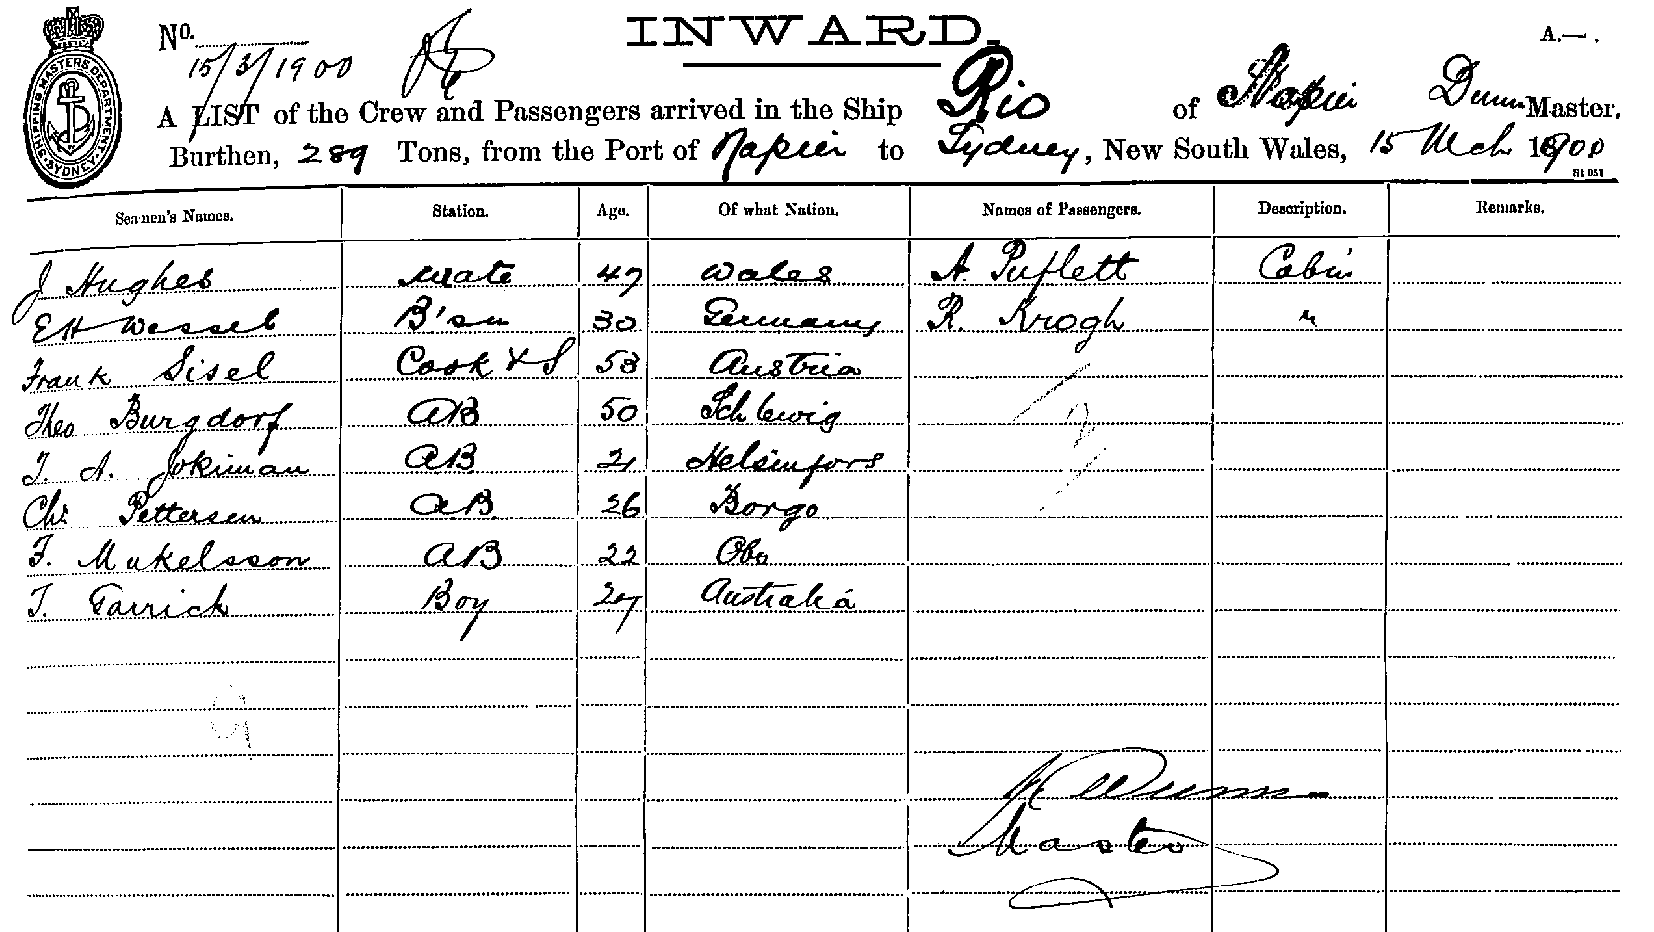 INWARD.
A.—.
No.
15/3/1900
SHIPPING MASTERS DEPARTMENT SYDNEY
A LIST of the Crew and Passengers arrived in the Ship Rio of Napier Dunn Master,
Burthen, 289 Tons, from the Port of Napier to Sydney, New South Wales, 15 Mch 1900
Seamen's Names. Station. Age. Of what Nation. Names of Passengers. Description. Remarks.
J Hughes Mate 47 Wales A. Puflett Cabin
EH Wessel B'sn 30 Germany R. Krogh "
Frank Sisel Cook & S 53 Austria
Theo Burgdorf AB 50 Schlewig
J. A. Jokiman AB 21 Helsinfors
Chr Pettersen A.B. 26 Borgo
F. Mukelsson AB 22 Obo
T. Garrick Boy 27 Australia
Dunn
Master